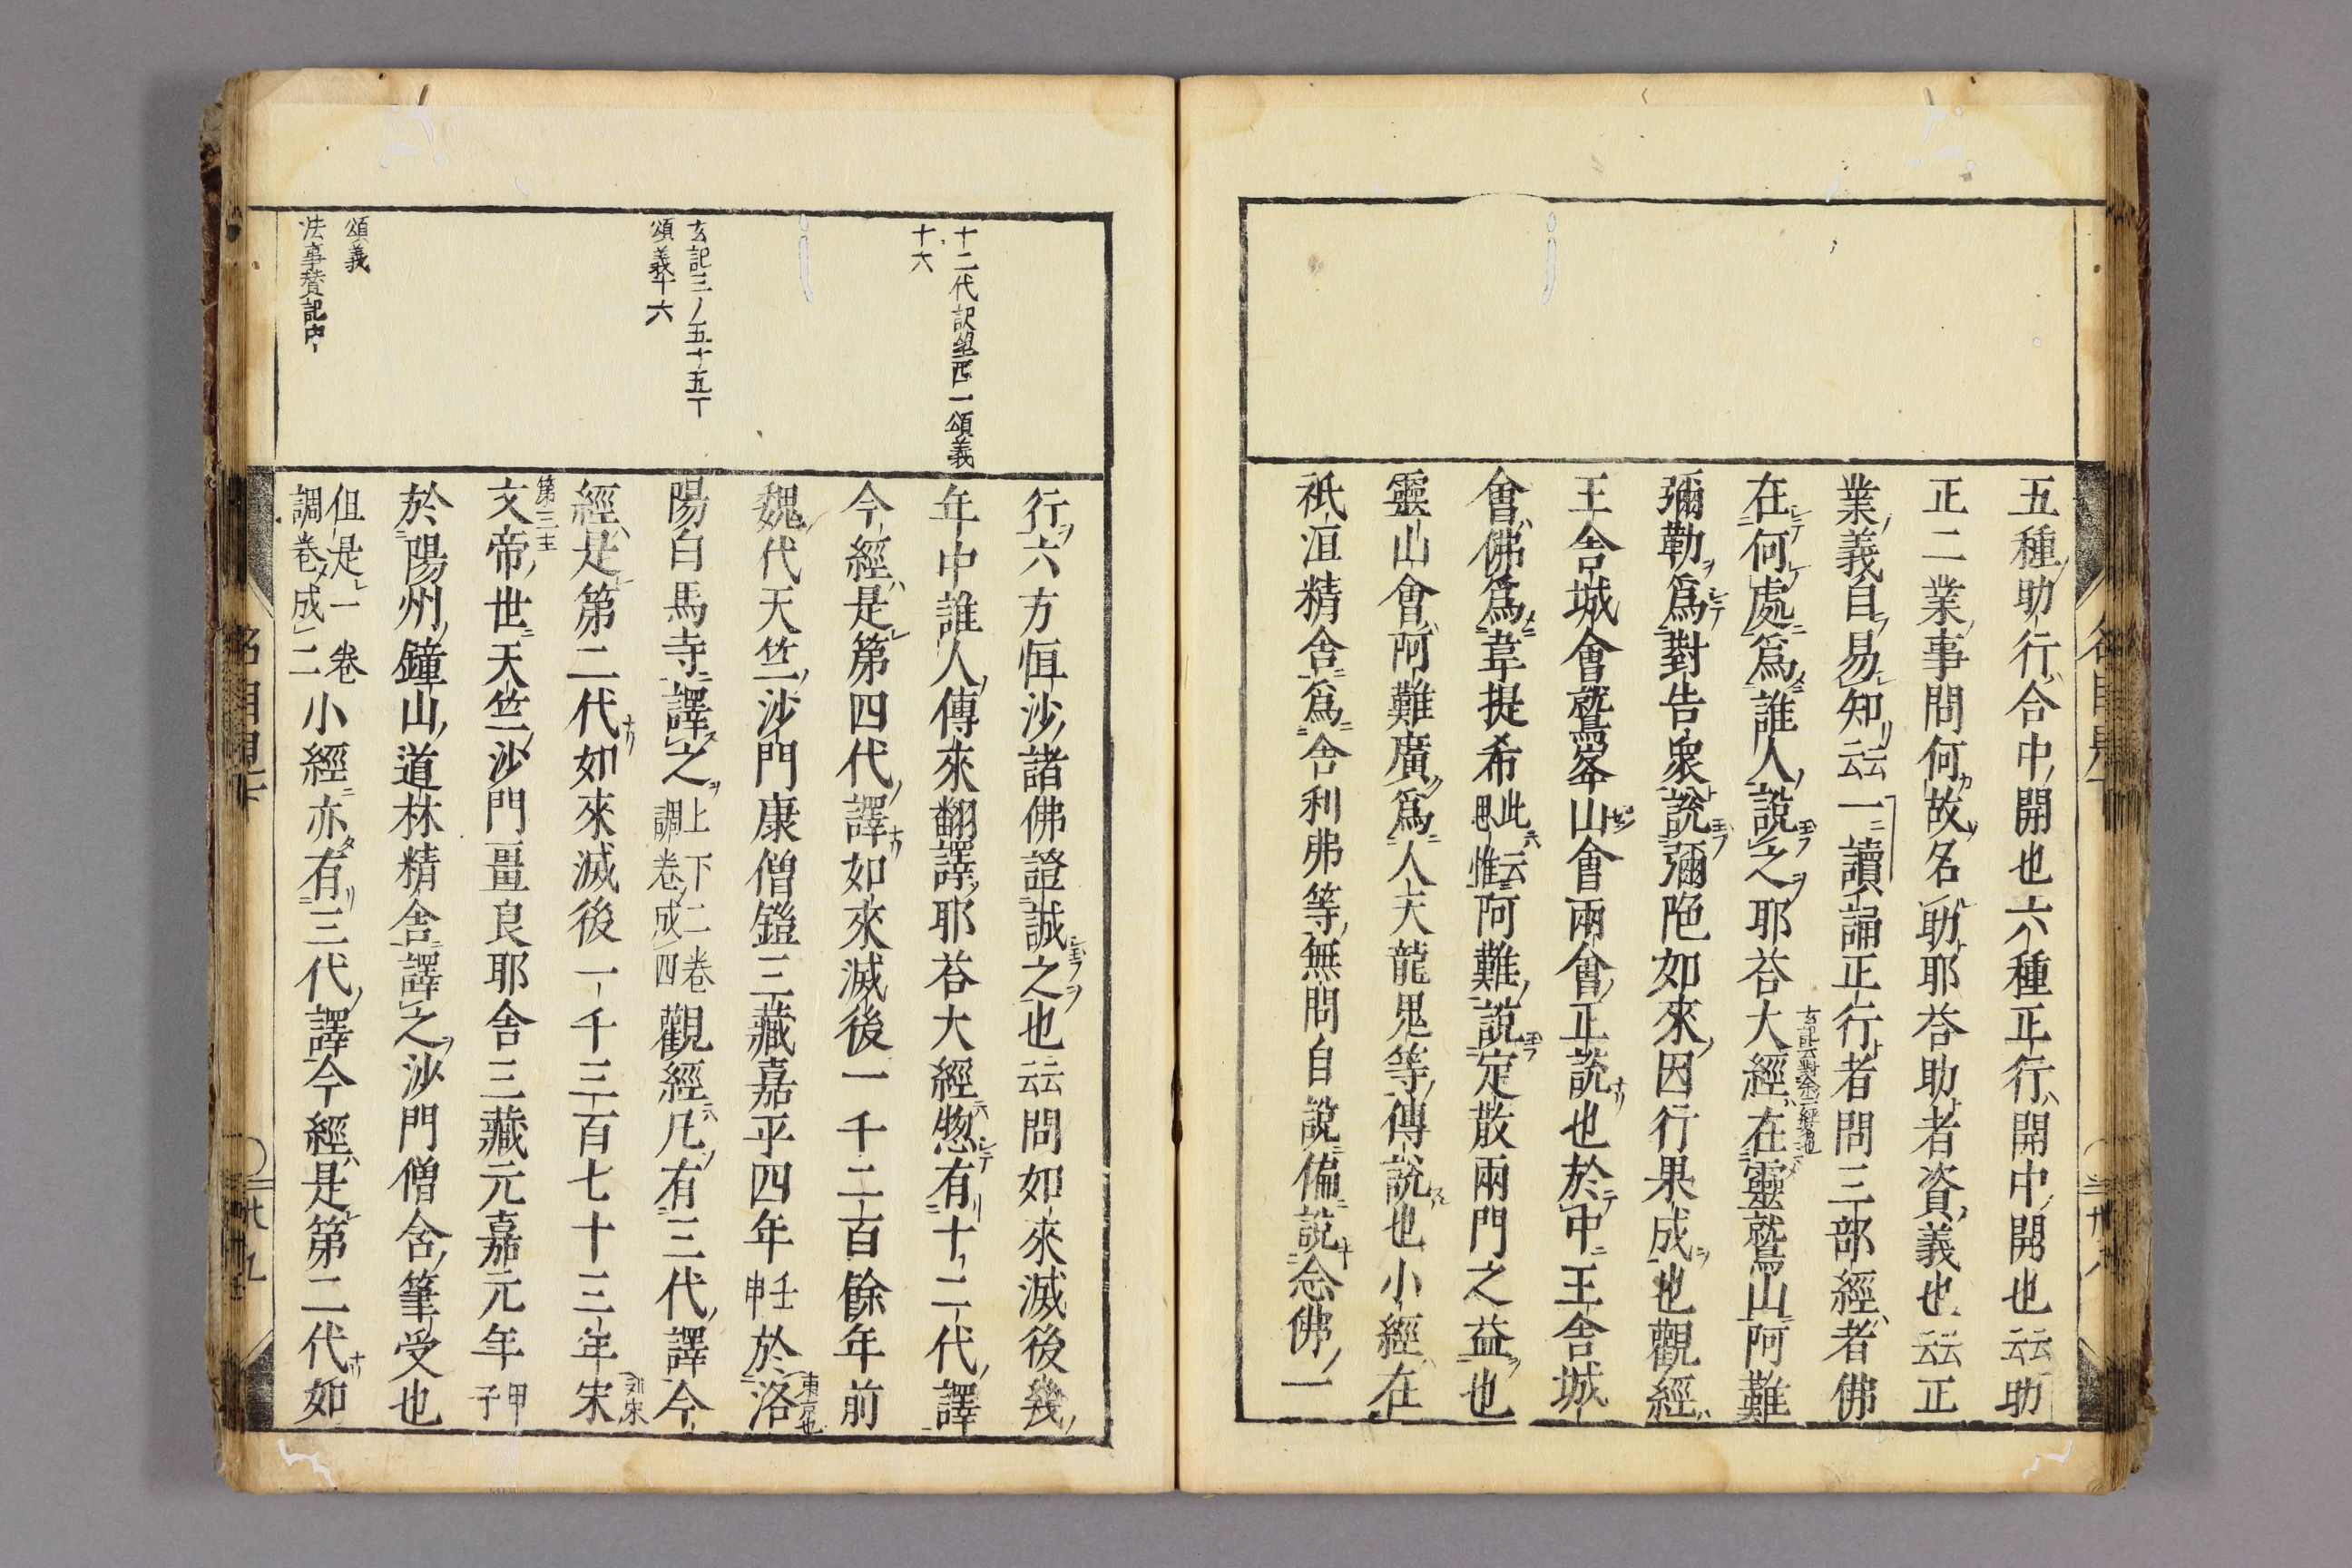 五種助行合中開也六種正行開中開也云云助
正二業事問何故名助耶荅助者資義也云云正
業義自易知云云一讀誦正行者問三部經者佛
在何處爲誰人說之耶荅大經在靈鷲山阿難
彌勒爲對告衆說彌陁如來因行果成也觀經
王舍城會鷲峯山會兩會正說也於中王舍城
會佛爲韋提希此云思惟阿難說定散兩門之益也
靈山會阿難廣爲人天龍鬼等傳說也小經在
祇洹精舍爲舍利弗等無問自說偏說念佛一
十二代訳望西一頌義
十六
玄記三ノ五十五丁
頌義十六
頌義
法事讃記中
行六方恒沙諸佛證誠之也云云問如來滅後幾
年中誰人傳來翻譯耶荅大經惣有十二代譯
今經是第四代譯如來滅後一千二百餘年前
魏代天竺沙門康僧鎧三藏嘉平四年壬申於洛
東京也
陽白馬寺譯之上下二卷調卷成四觀經凡有三代譯今
經是第二代如來滅後一千三百七十三年宋
劉宋
第三主
文帝世天竺沙門畺良耶舍三藏元嘉元年甲子
於陽州鐘山道林精舍譯之沙門僧含筆受也
但是一卷調卷成二小經亦有三代譯今經是第二代如